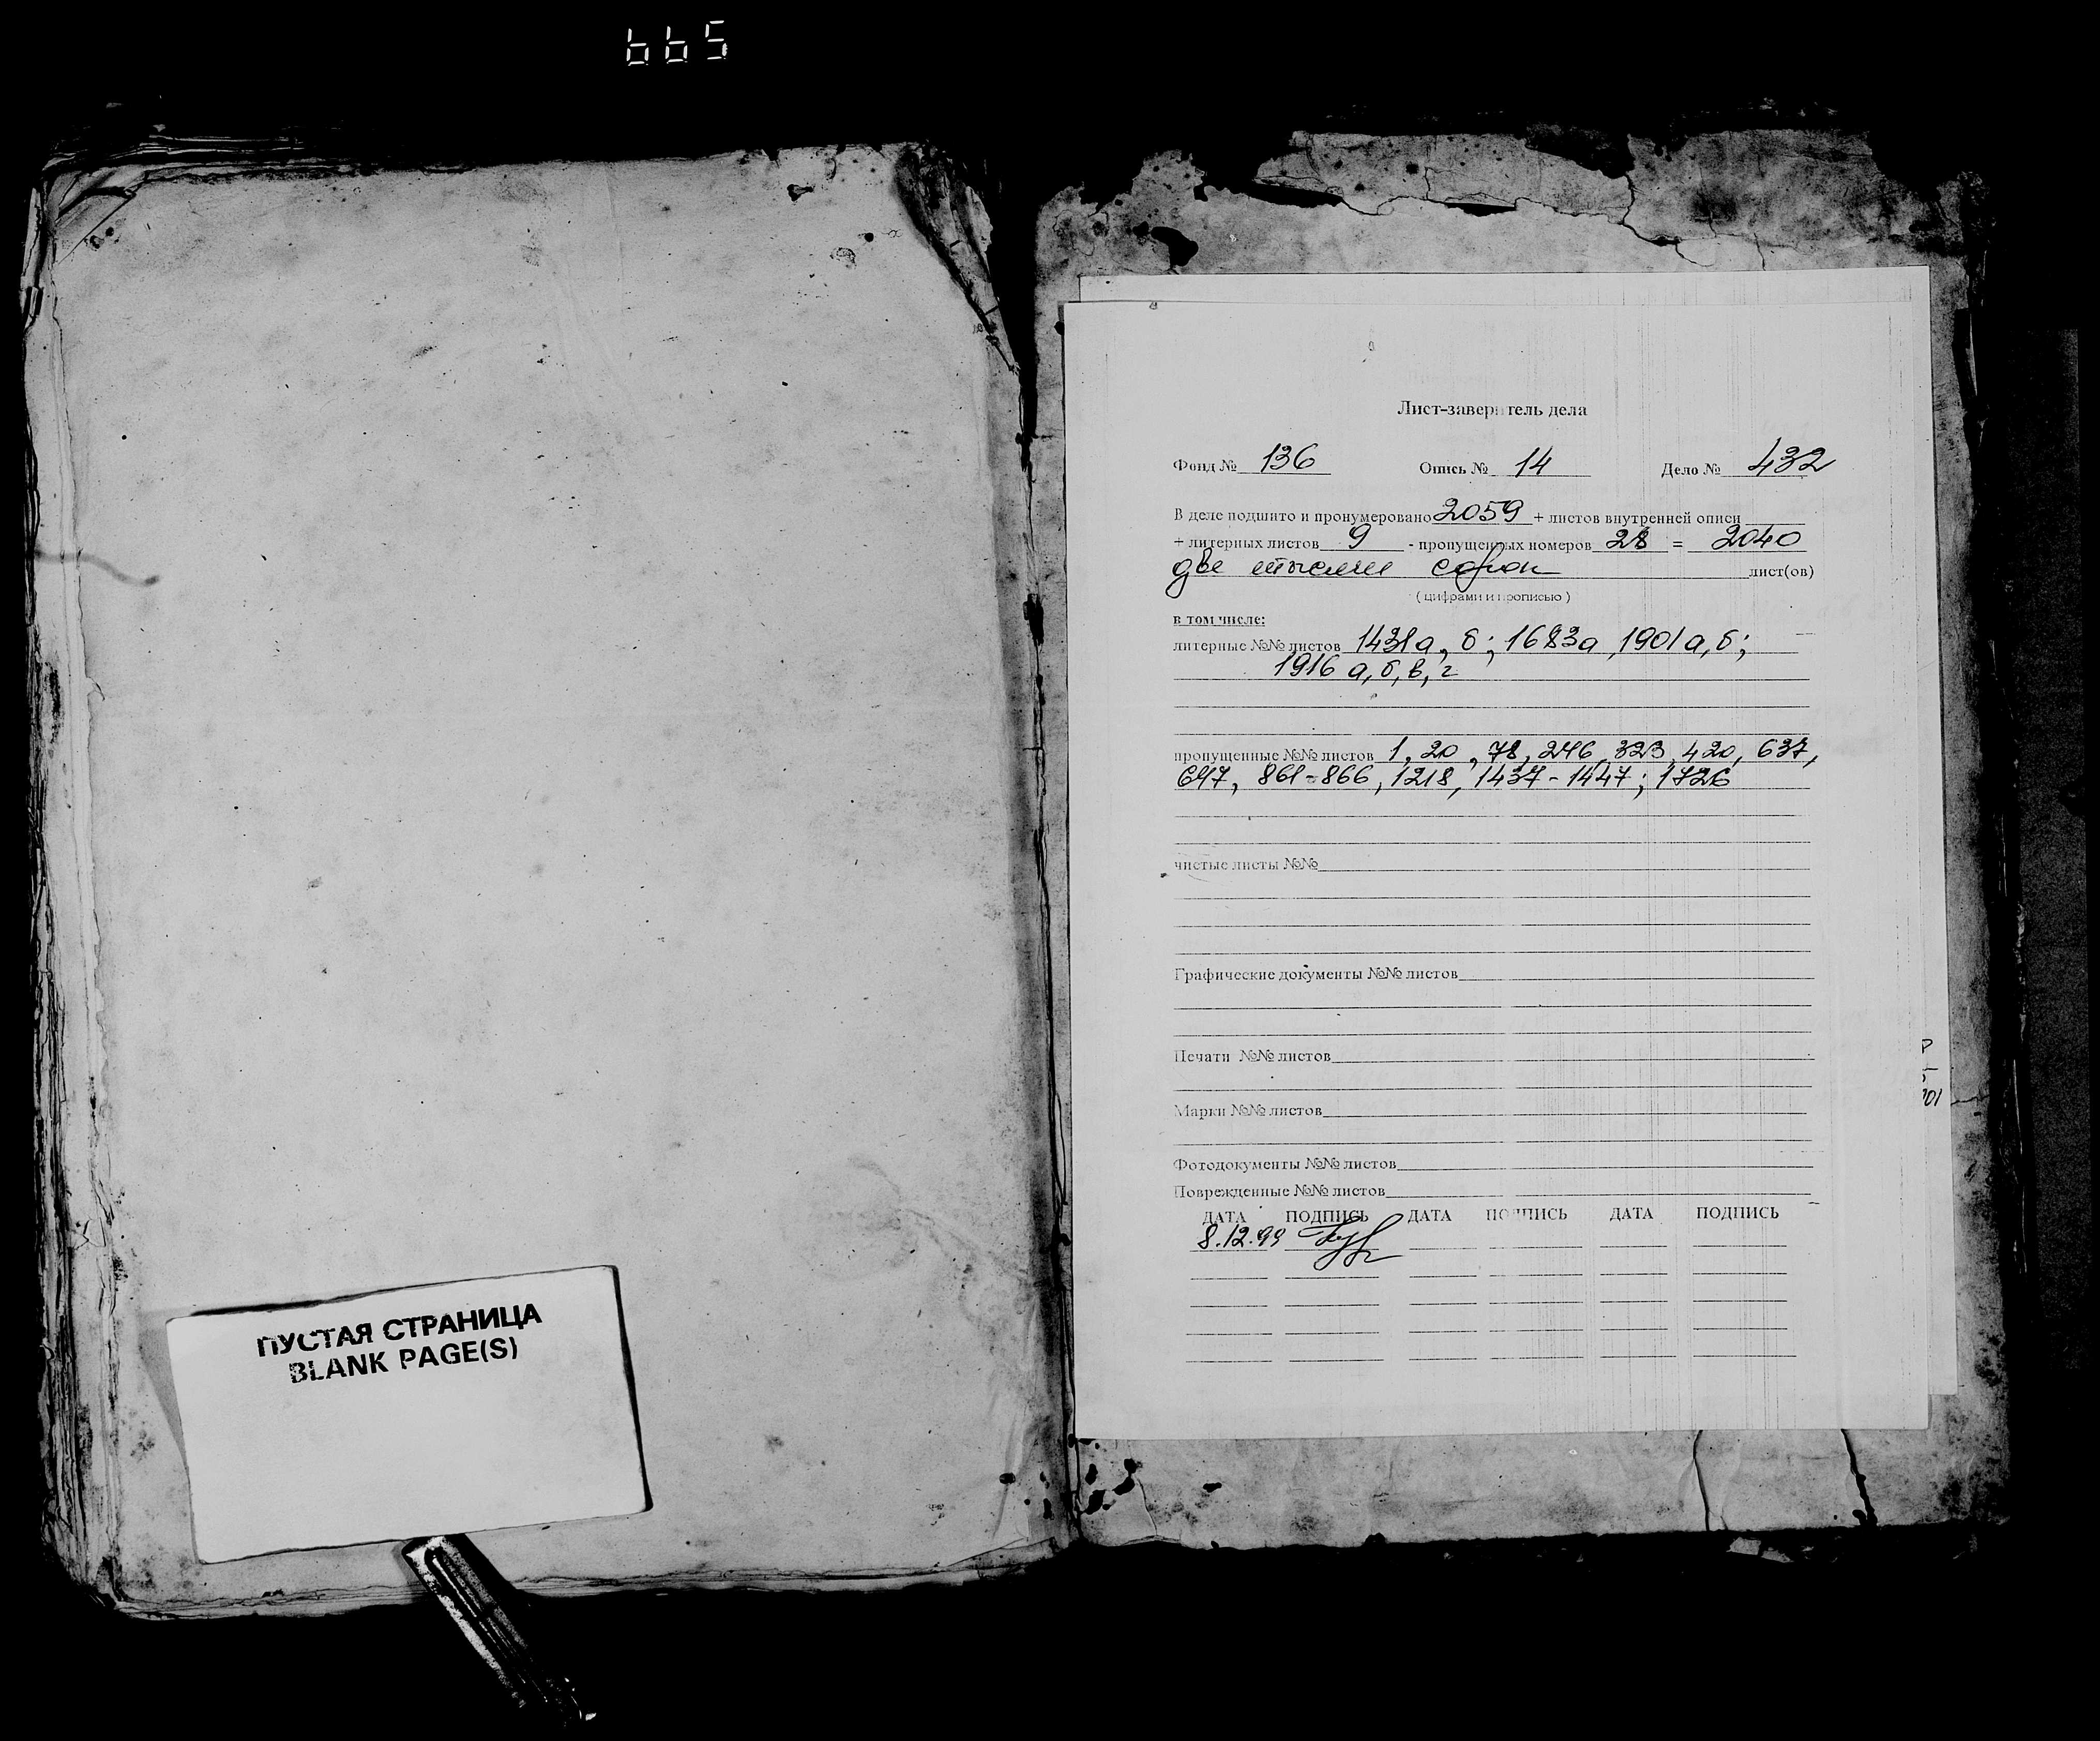 665
ПУСТАЯ СТРАНИЦА
BLANK PAGE(S)
Лист-заверитель дела
Фонд № 136 Опись № 14 Дело № 432
В деле подшито и пронумеровано 2059 + листов внутренней описи
+ литерных листов 9 - пропущенных номеров 28 = 2040
две тысячи сорок лист(ов)
( цифрами и прописью )
в том числе:
литерные №№ листов 1431а, б; 1683а, 1901а, б;
1916 а, б, в, г
пропущенные №№ листов 1, 20, 78, 246, 323, 420, 637,
647, 861-866, 1218, 1437-1447; 1726
чистые листы №№
Графические документы №№ листов
Печати №№ листов
Марки №№ листов
Фотодокументы №№ листов
Поврежденные №№ листов
ДАТА ПОДПИСЬ ДАТА ПОДПИСЬ ДАТА ПОДПИСЬ
8.12.99